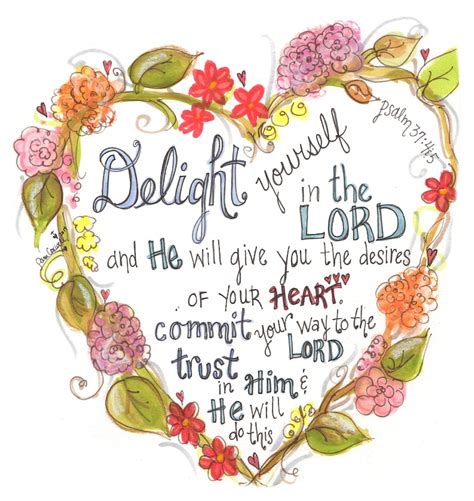 Delight yourself
in the
LORD
and He will give you the desires
of your HEART.
commit your way to the
LORD
trust
in Him &
He will
do this
psalm 37:4&5